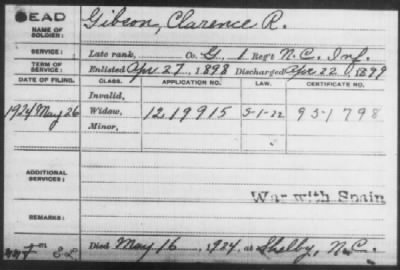 DEAD
NAME OF SOLDIER: Gibson, Clarence R.
SERVICE: Late rank, Co. G, 1 Reg't N.C. Inf.
TERM OF SERVICE: Enlisted Apr. 27, 1898 Discharged Apr. 22, 1899
DATE OF FILING. CLASS. APPLICATION NO. LAW. CERTIFICATE NO.
Invalid,
1924 May 26 Widow, 1219915 5-1-22 951798
Minor,
ADDITIONAL SERVICES:
War with Spain
REMARKS:
Died May 16, 1924, at Shelby, N.C.